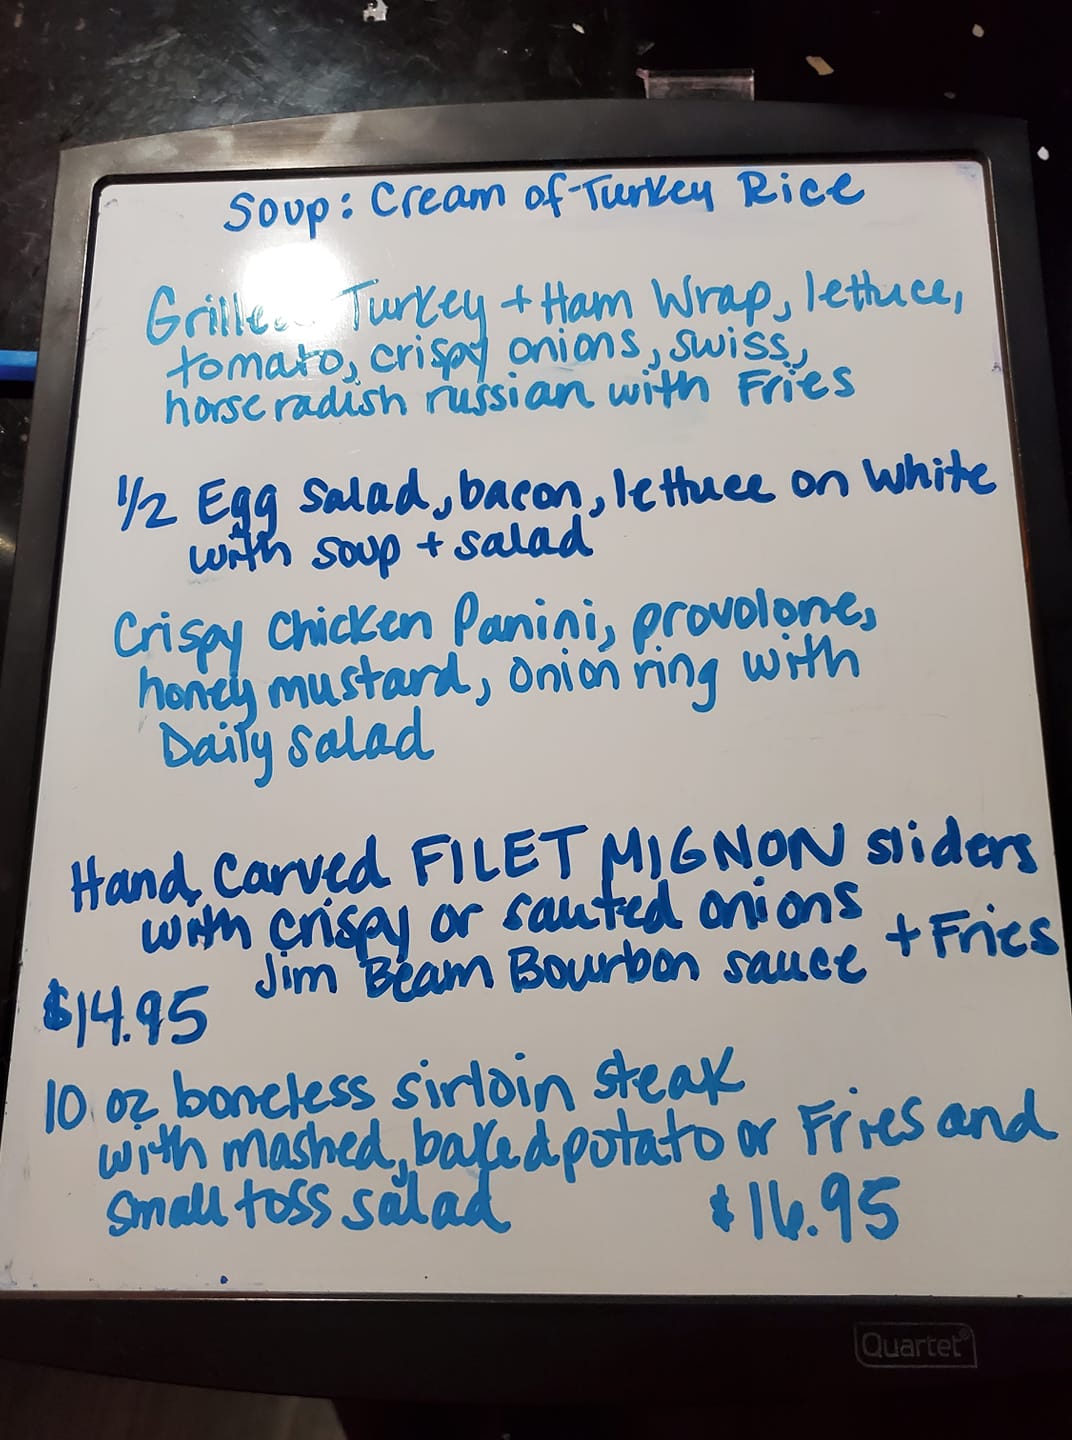 Soup: Cream of Turkey Rice
Grilled Turkey + Ham Wrap, lettuce,
tomato, crispy onions, swiss,
horseradish russian with Fries
1/2 Egg Salad, bacon, lettuce on White
with soup + salad
Crispy Chicken Panini, provolone,
honey mustard, onion ring with
Daily Salad
Hand Carved FILET MIGNON sliders
with crispy or sauted onions
Jim Beam Bourbon sauce + Fries
$14.95
10 oz boneless sirloin steak
with mashed, baked potato or Fries and
small toss salad $16.95
Quartet®